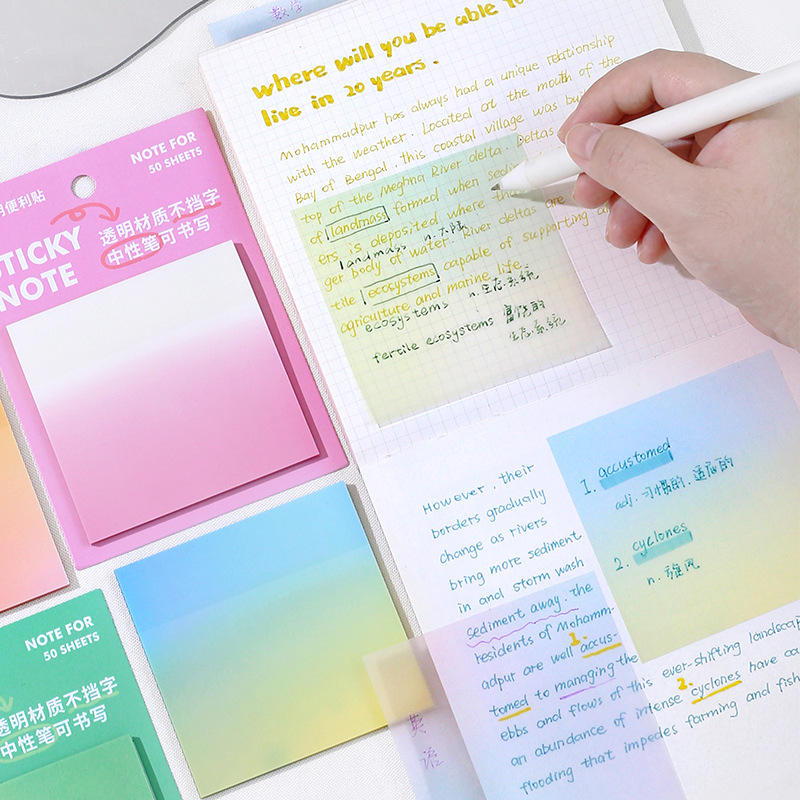 数学
where will you be able to
live in 20 years.
Mohammadpur has always had a unique relationship
with the weather. Located at the mouth of the
Bay of Bengal, this coastal village was
top of the Meghna River delta. Deltas
of landmass formed when
landmass n.大陆
ers is deposited where the
ger body of water. River deltas are
tile ecosystems capable of supporting
ecosystems n.生态系统
agriculture and marine life.
fertile ecosystems 富饶的
生态系统
NOTE FOR
50 SHEETS
明便利贴
STICKY
NOTE
透明材质不挡字
中性笔可书写
However, their
borders gradually
change as rivers
bring more sediment
in and storm wash
sediment away. the
residents of Mohamm-
adpur are well accus-
1.
tomed to managing the
ebbs and flows of this ever-shifting landscap
2.
an abundance of intense cyclones have
flooding that impedes farming and fish
英语
1. accustomed
adj. 习惯的, 适应的
2. cyclones
n. 旋风
NOTE FOR
50 SHEETS
透明材质不挡字
中性笔可书写